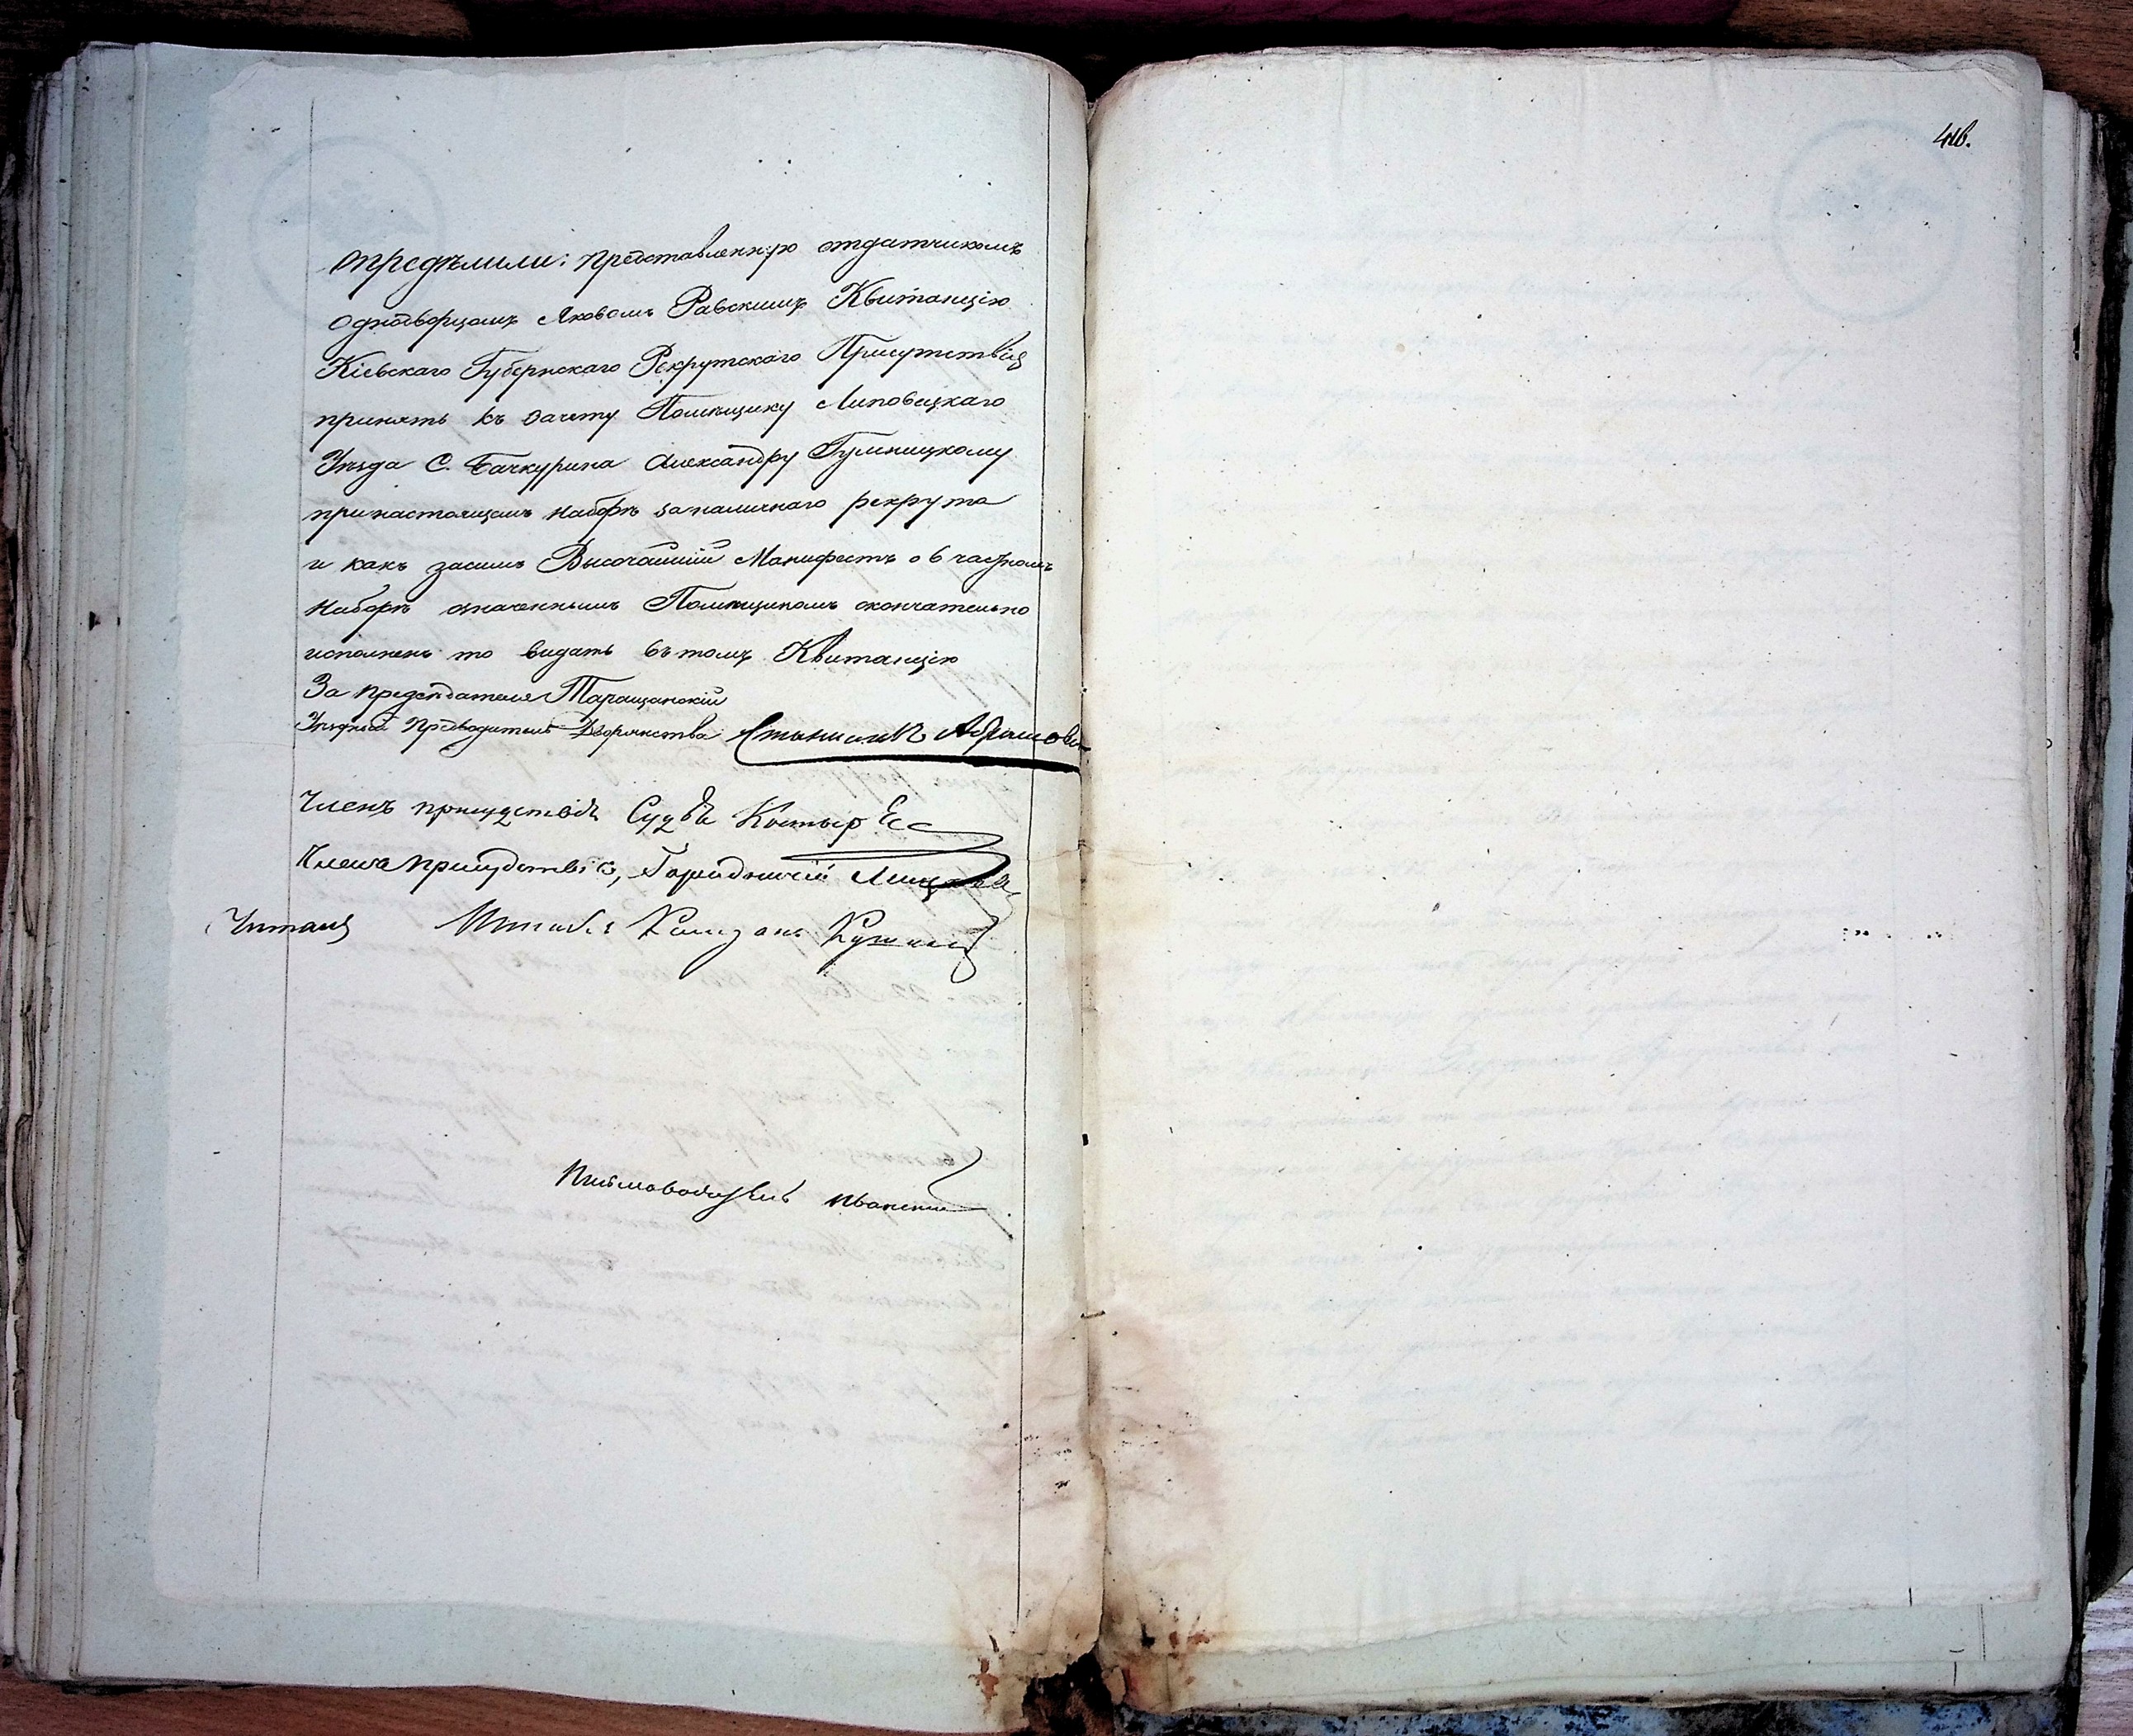 Опредѣлили: Представленную отдатчикомъ
Однодворцомъ Яковомъ Равскимъ Квитанцію
Кіевскаго Губернскаго Рекрутскаго Присутствія
принять къ зачету Помѣщику Липовецкаго
Уѣзда С. Бачкурина Александру Гулиницкому
при настоящемъ наборѣ за наличнаго рекрута
и какъ засимъ Высочайшій Манифестъ о 6 частномъ
Наборѣ означеннымъ Помѣщикомъ окончательно
исполненъ то видать въ томъ Квитанцію
За предсѣдателя Таращанскій
Уѣздный Предводитель Дворянства
Членъ присудствія Судья
Члена присудствія, Городничій
Читалъ Штабсъ Капитанъ
Письмоводитель Иванскій